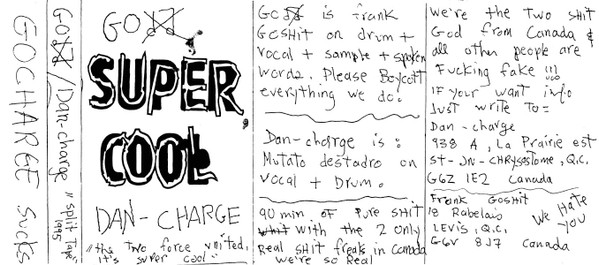 GOCHARGE SUCKS
GO /Dan-charge "split Tape" 1995
GO
SUPER
COOL
DAN-CHARGE
"the two force united,
it's super cool"
GO is frank
GOSHIT on drum +
vocal + sample + spoken
words. Please Boycott
everything we do.
Dan-charge is:
Mutato destadro on
vocal + Drum.
90 min of pure SHIT
with the 2 only
Real SHIT freaks in Canada
we're so Real
we're the TWO SHIT
God from Canada &
all other people are
Fucking fake !!!
IF your want info
Just write To:
Dan-charge
938 A, La Prairie est
St-JN-CHRYSOSTOME, Q.C.
G6Z 1E2 Canada
Frank GOSHIT
18 Rabelais
LEVIS, Q.C.
G6V 8J7 Canada
We Hate
you